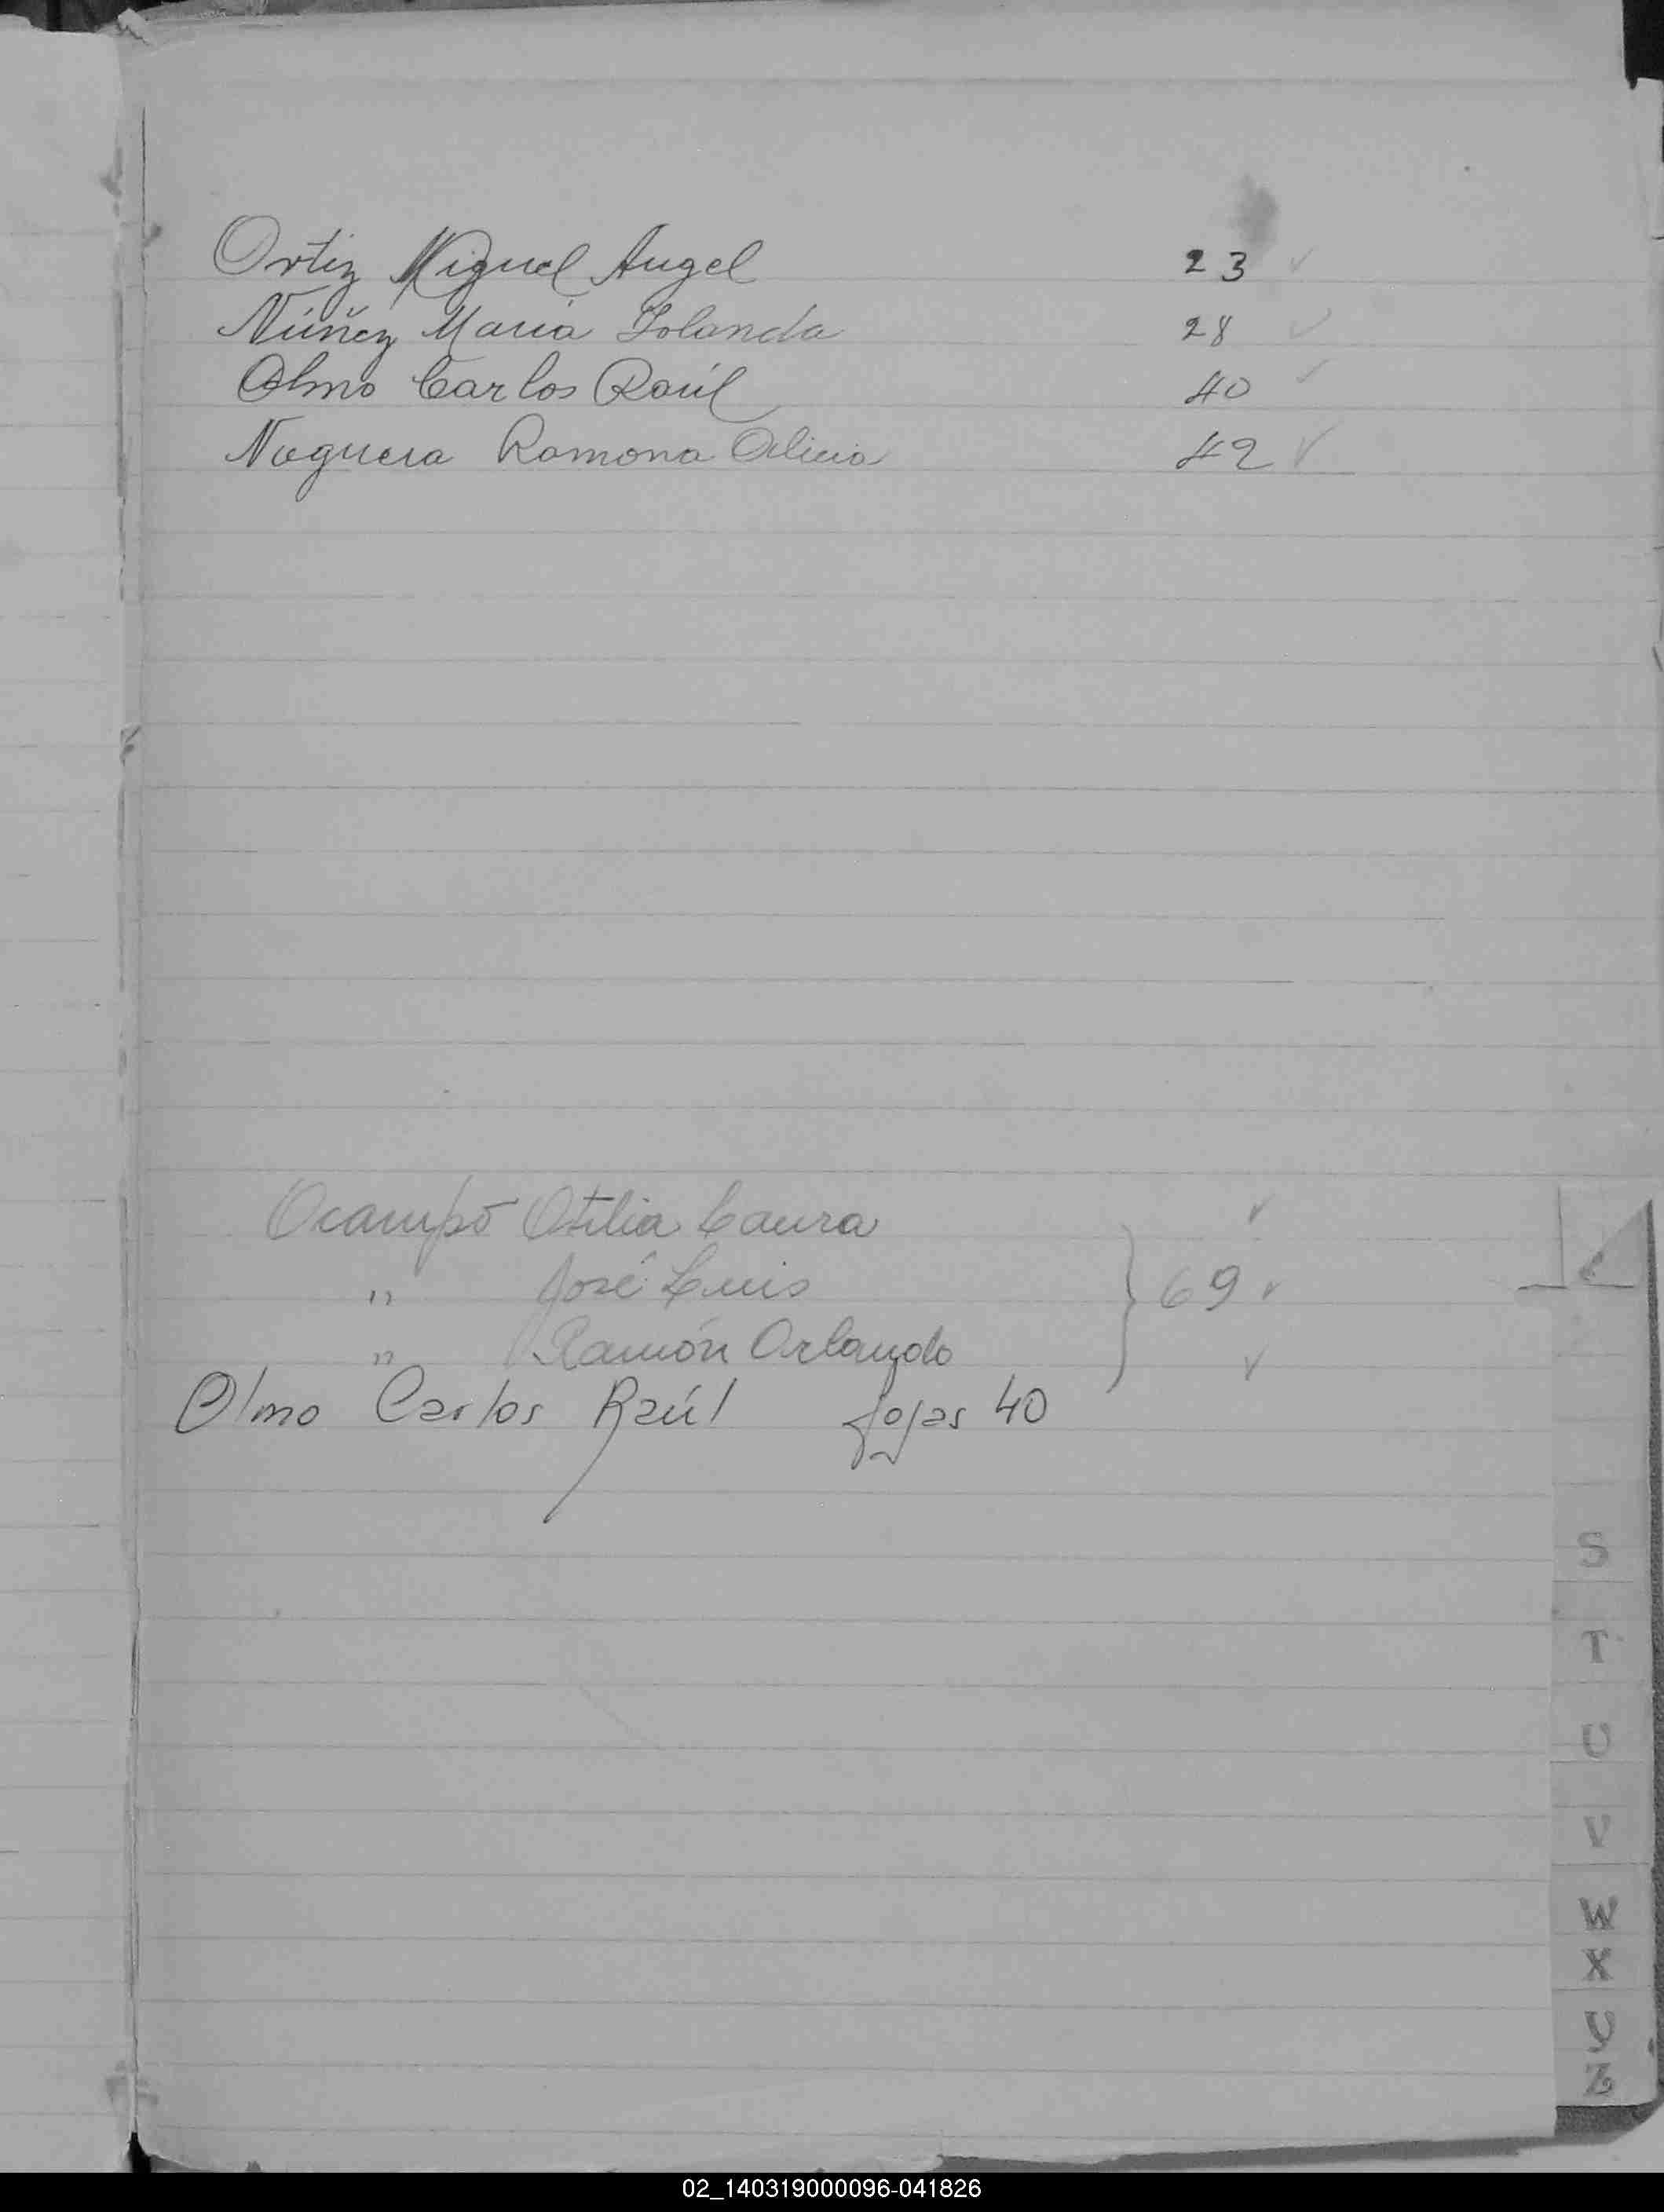 Ortiz Miguel Angel 23 ✓
Núñez María Iolanda 28 ✓
Olmo Carlos Raúl 40 ✓
Noguera Ramona Alicia 42 ✓
Ocampo Otilia Laura ✓
" José Luis } 69 ✓
" Ramón Orlando ✓
Olmo Carlos Raúl fojas 40
S
T
U
V
W
X
Y
Z
02_140319000096-041826